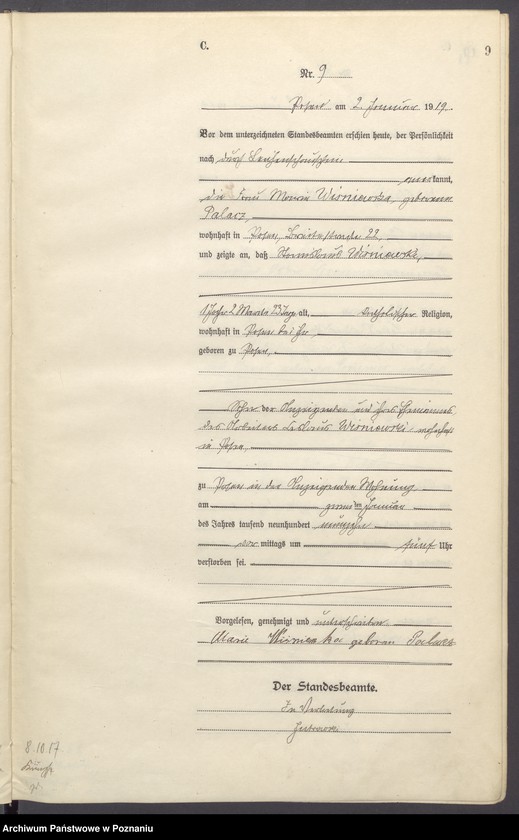 C.
9
Nr. 9
Posen am 2. Januar 1919.
Vor dem unterzeichneten Standesbeamten erschien heute, der Persönlichkeit
nach durch Leichenschauschein
anerkannt,
die Frau Maria Wisniewska, geborene
Palacz,
wohnhaft in Posen, 22,
und zeigte an, daß Stanislaus Wisniewski,
1 Jahr 2 Monate 23 Tage alt, katholischer Religion,
wohnhaft in Posen bei ihr
geboren zu Posen,
Sohn der Anzeigenden und ihres Ehemannes
des Arbeiters Wisniewski, wohnhaft
in Posen
zu Posen in der Anzeigenden Wohnung
am ten Januar
des Jahres tausend neunhundert neunzehn
vor mittags um fünf Uhr
verstorben sei.
Vorgelesen, genehmigt und unterschrieben
Marie geboren Palacz
Der Standesbeamte.
In Vertretung
8.10.17
Archiwum Państwowe w Poznaniu